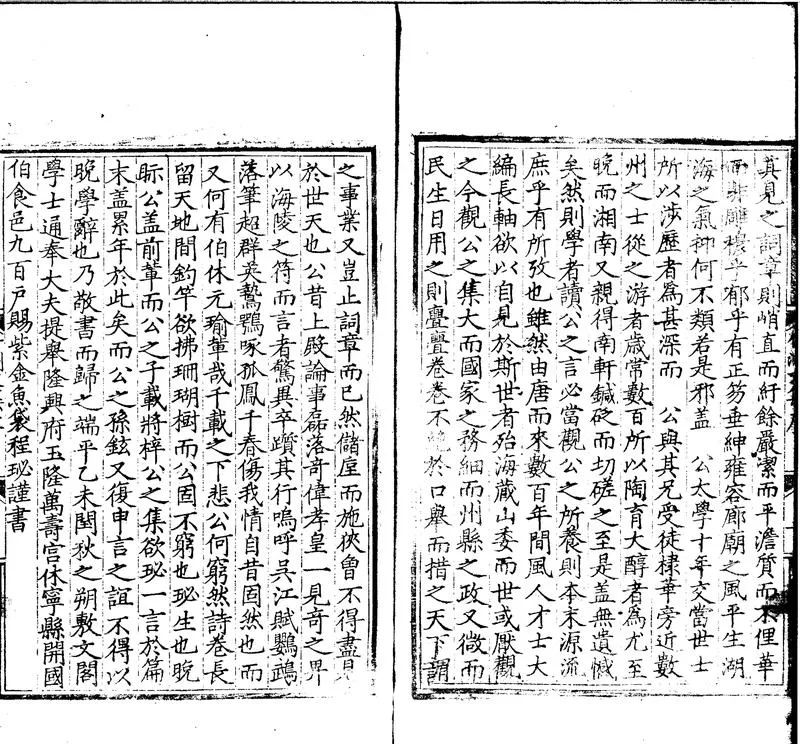 其見之詞章則峭直而紆餘嚴潔而平澹質而不俚華
而非雕穠乎郁乎有正笏垂紳雍容廊廟之風平生湖
海之氣抑何不類若是邪蓋 公太學十年交當世士
所以涉歷者為甚深而 公與其兄受徒棣華旁近數
州之士從之游者歲常數百所以陶育大醇者為尤至
晚而湘南又親得南軒鍼砭而切磋之至是蓋無遺憾
矣然則學者讀公之言必當觀公之所養則本末源流
庶乎有所攷也雖然由唐而來數百年間風人才士大
編長軸欲以自見於斯世者殆海藏山委而世或厭觀
之今觀公之集大而國家之務細而州縣之政又微而
民生日用之則亹亹卷卷不絕於口舉而措之天下謂
之事業又豈止詞章而已然儲厚而施狹曾不得盡見
於世天也公昔上殿論事磊落奇偉孝皇一見奇之畀
以海陵之符而言者驚異卒躓其行嗚呼吳江賦鸚鵡
落筆超群英鷙鶚啄孤鳳千春傷我情自昔固然也而
又何有伯休元瑜輩哉千載之下悲公何窮然詩卷長
留天地間釣竿欲拂珊瑚樹而公固不窮也珌生也晚
眎公蓋前輩而公之子載將梓公之集欲珌一言於篇
末蓋累年於此矣而公之孫鉉又復申言之誼不得以
晚學辭也乃敬書而歸之端平乙未閏秋之朔敷文閣
學士通奉大夫提舉隆興府玉隆萬壽宮休寧縣開國
伯食邑九百戶賜紫金魚袋程珌謹書